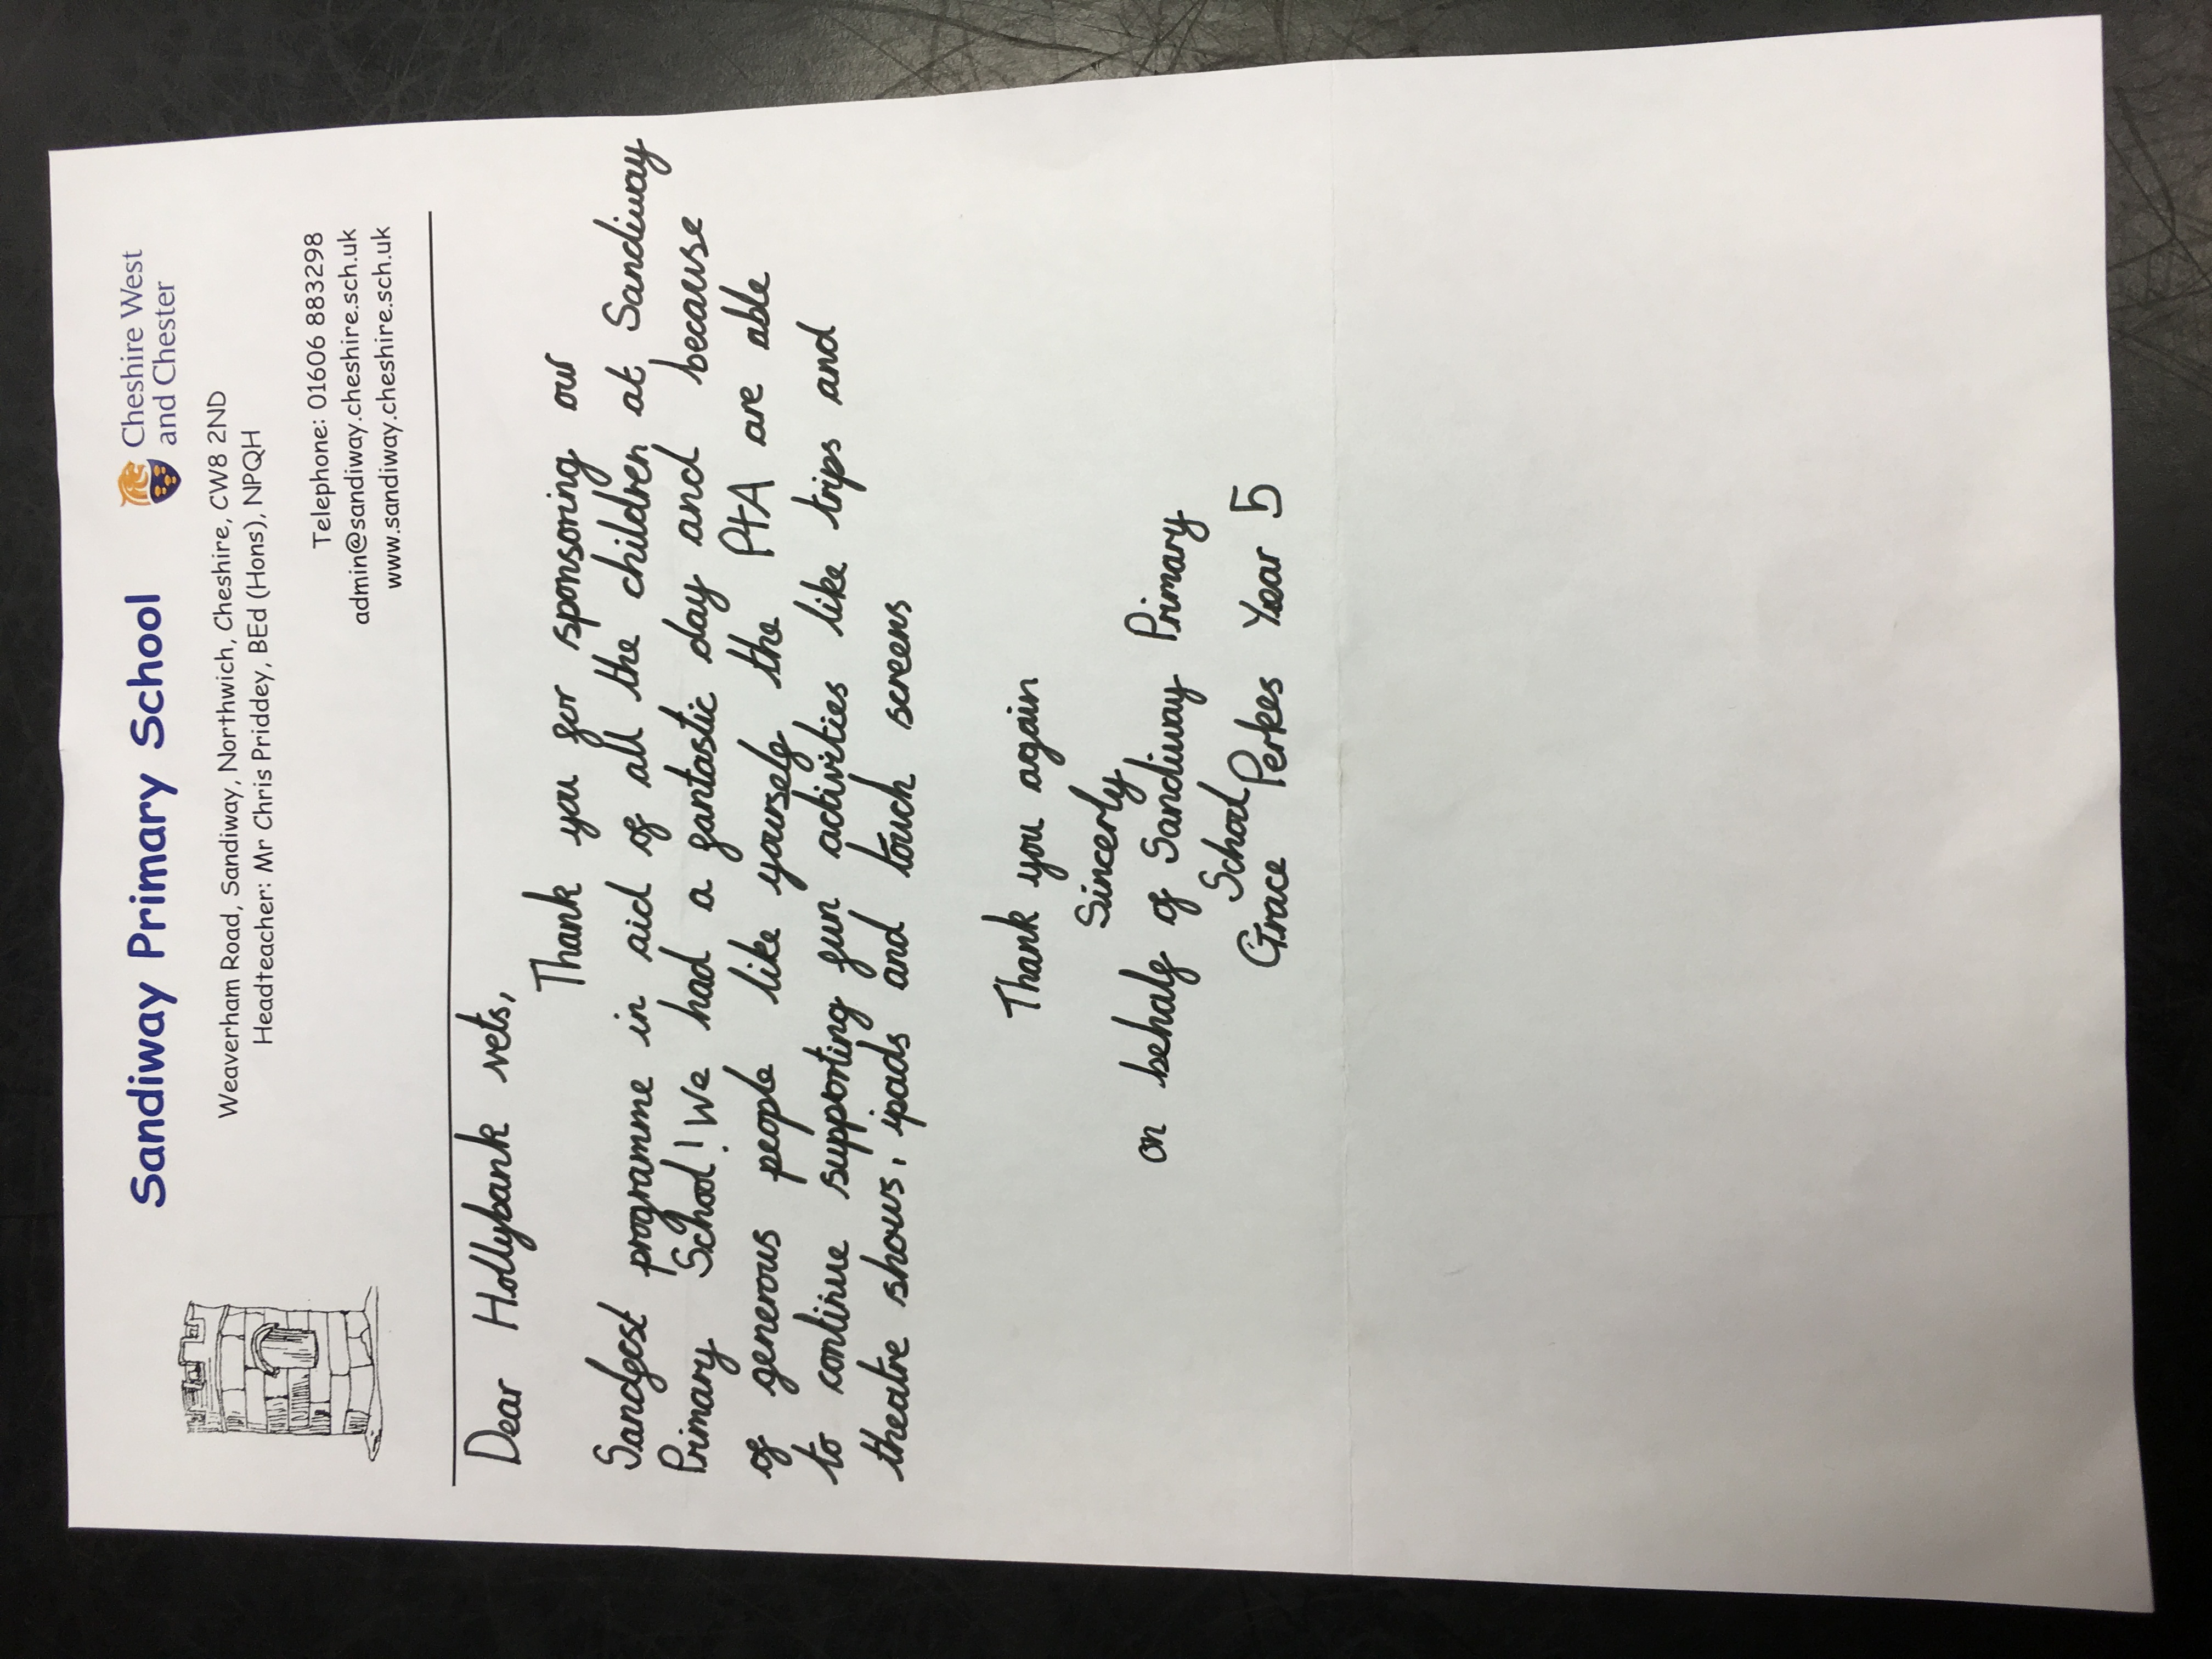 Sandiway Primary School
Cheshire West
and Chester
Weaverham Road, Sandiway, Northwich, Cheshire, CW8 2ND
Headteacher: Mr Chris Priddey, BEd (Hons), NPQH
Telephone: 01606 883298
admin@sandiway.cheshire.sch.uk
www.sandiway.cheshire.sch.uk
Dear Hollybank vets,
Thank you for sponsoring our
Sandfest programme in aid of all the children at Sandiway
Primary School! We had a fantastic day and because
of generous people like yourself the PtA are able
to continue supporting fun activities like trips and
theatre shows, ipads and touch screens
Thank you again
Sincerly,
on behalf of Sandiway Primary
School
Grace Perkes Year 5